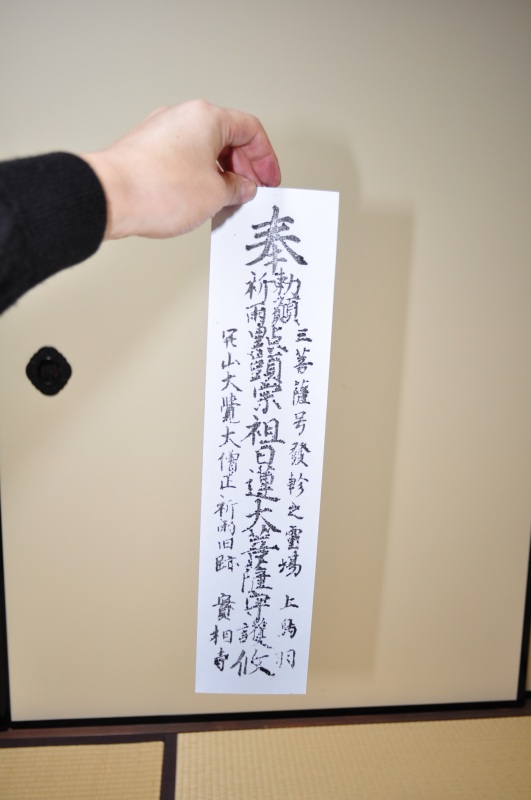 三菩薩号發軫之霊場 上鳥羽
奉 勅願 祈雨點頭宗祖日蓮大菩薩守護攸
開山大覺大僧正祈雨旧跡 實相寺